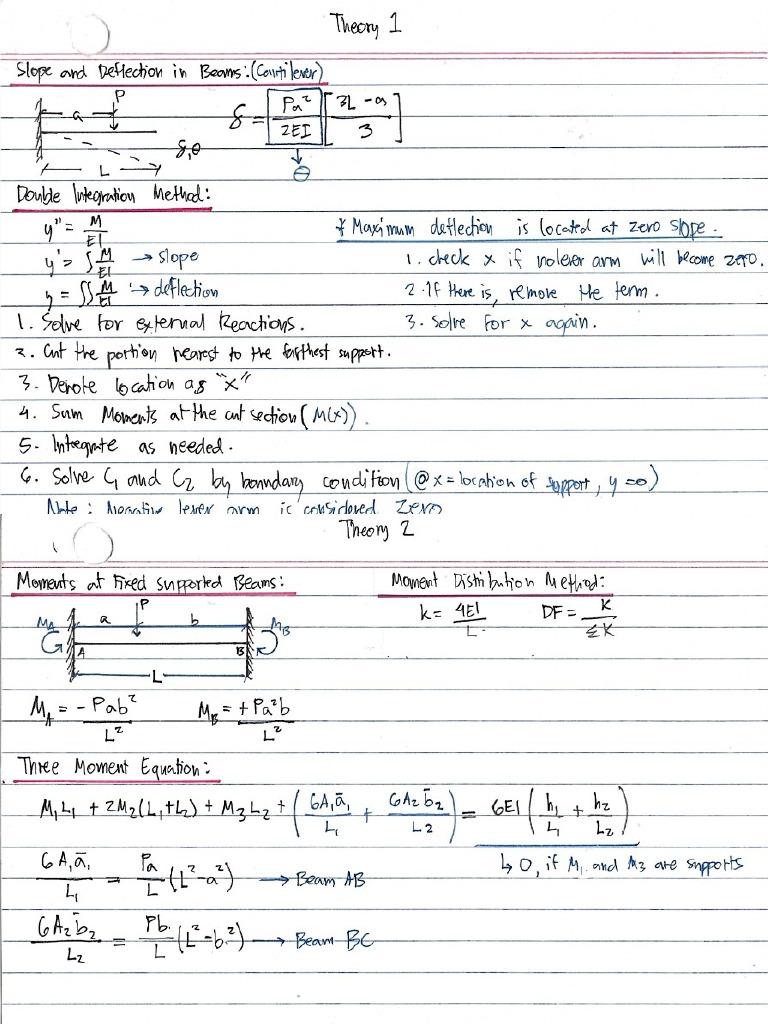 Theory 1
Slope and Deflection in Beams: (Cantilever)
P
a
L
δ,θ
δ = Pa²/2EI [3L - a / 3]
θ
Double Integration Method:
y" = M/EI
y' = ∫ M/EI → slope
y = ∫∫ M/EI → deflection
* Maximum deflection is located at zero slope.
1. check x if no lever arm will become zero.
2. If there is, remove the term.
3. Solve for x again.
1. Solve for external Reactions.
2. Cut the portion nearest to the farthest support.
3. Denote location as "x"
4. Sum Moments at the cut section (M(x)).
5. Integrate as needed.
6. Solve C₁ and C₂ by boundary condition (@ x = location of support, y = 0)
Note: Negative lever arm is considered Zero
Theory 2
Moments at Fixed supported Beams:
P
a b
M_A M_B
A B
L
M_A = - Pab²/L² M_B = + Pa²b/L²
Moment Distribution Method:
k = 4EI/L DF = K/ΣK
Three Moment Equation:
M₁L₁ + 2M₂(L₁+L₂) + M₃L₂ + (6A₁ā₁/L₁ + 6A₂b̄₂/L₂) = 6EI (h₁/L₁ + h₂/L₂)
↳ 0, if M₁ and M₃ are supports
6A₁ā₁/L₁ = Pa/L (L²-a²) → Beam AB
6A₂b̄₂/L₂ = Pb/L (L²-b²) → Beam BC